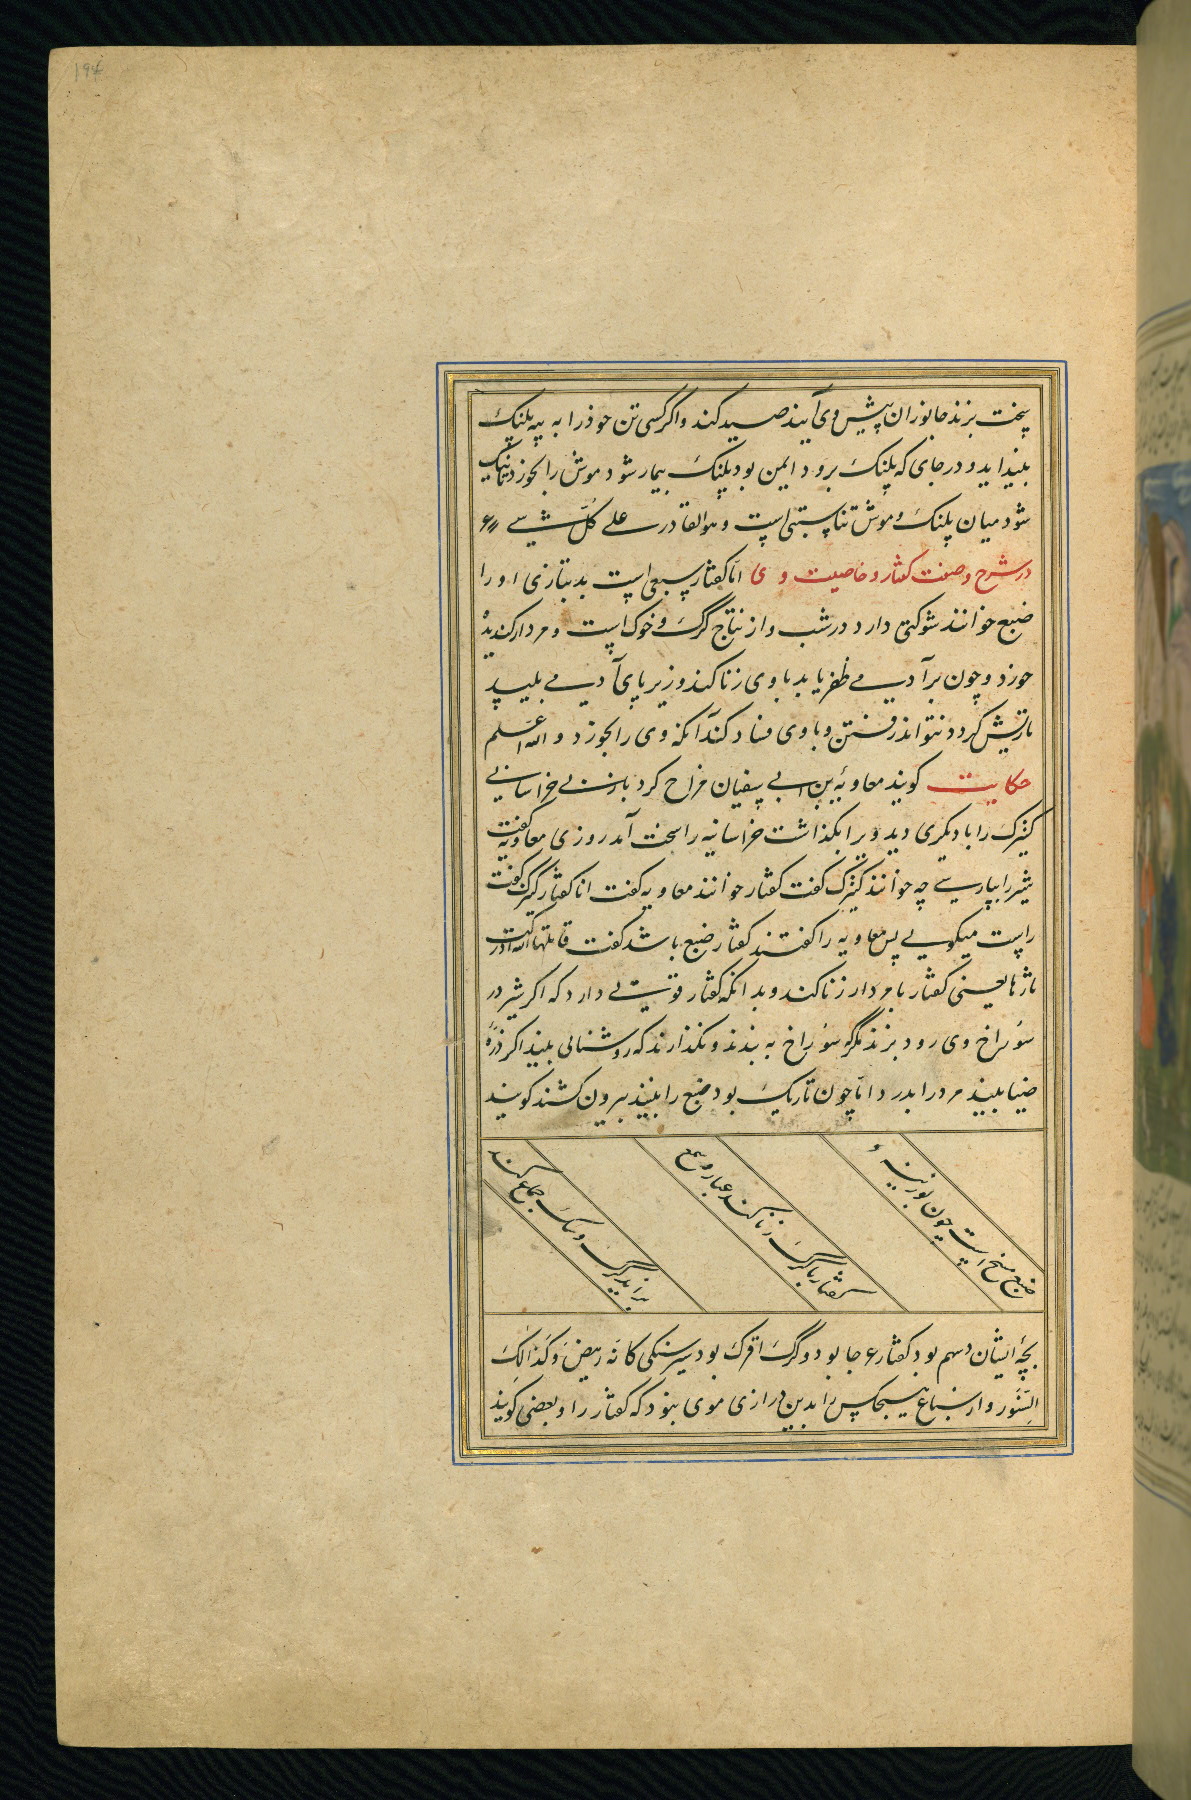 ۱۹۴
پخت برند جانوران پیش وی آیند صید کند و اگر کسی تن خوذ را به پیه پلنک
بلنداید و در جای که پلنک بروذ ایمن بود پلنک بیمار شود موش را بخورد نیک
شود میان پلنک و موش تناسبتی است و هو القادر علی کل شیء
در شرح و صفت کفتار و خاصیت وی اما کفتار سبعی است بد بتازی او را
ضبع خوانند شوکتی دارد در شب و از نتاج گرگ و خوک است و مردار کندیده
خورد و چون بر آدمی ظفر یابد با وی زنا کند و زیر پای آدمی بلیسد
تا ریش کردد نتواند رفتن و با وی فساد کند آنکه وی را بخورد و الله اعلم
حکایت کویند معاویة بن ابی سفیان مزاح کرد با زنی خراسانی
کنیزک را با دیکری دید ویرا بکذاشت خراسانیه را سخت آمد روزی معاویه گفت
شیر را بپارسی چه خوانند کنیزک کفت کفتار خوانند معاویه کفت انا کفتار کنیزک کفت
راست میکویی پس معاویه را کفتند کفتار ضبع باشد کفت قاتلها الله ادرکت
ثارها یعنی کفتار با مردار زنا کند و بدانکه کفتار قوتی دارد که اکر شیر در
سوراخ وی رود برند مگر که سوراخ به بندند و نکذارند که روشنائی بیند اکر ذره
ضیا بیند مرد را بدرد اما چون تاریک بود ضبع را ببندند بیرون کشند کویند
ضبع مسخ است چون بوزینه و
کفتار با گرگ زنا کند عبار و سمع
زاید گرگ و سک جماع کنند
بچهٔ ایشان دسم بود کفتار عرجا بود و گرگ اقزک بود شیر سنکی کانه رهیص و کذالک
السنور و از سباع هیچکس را بدین درازی موی نبود که کفتار را و بعضی کویند